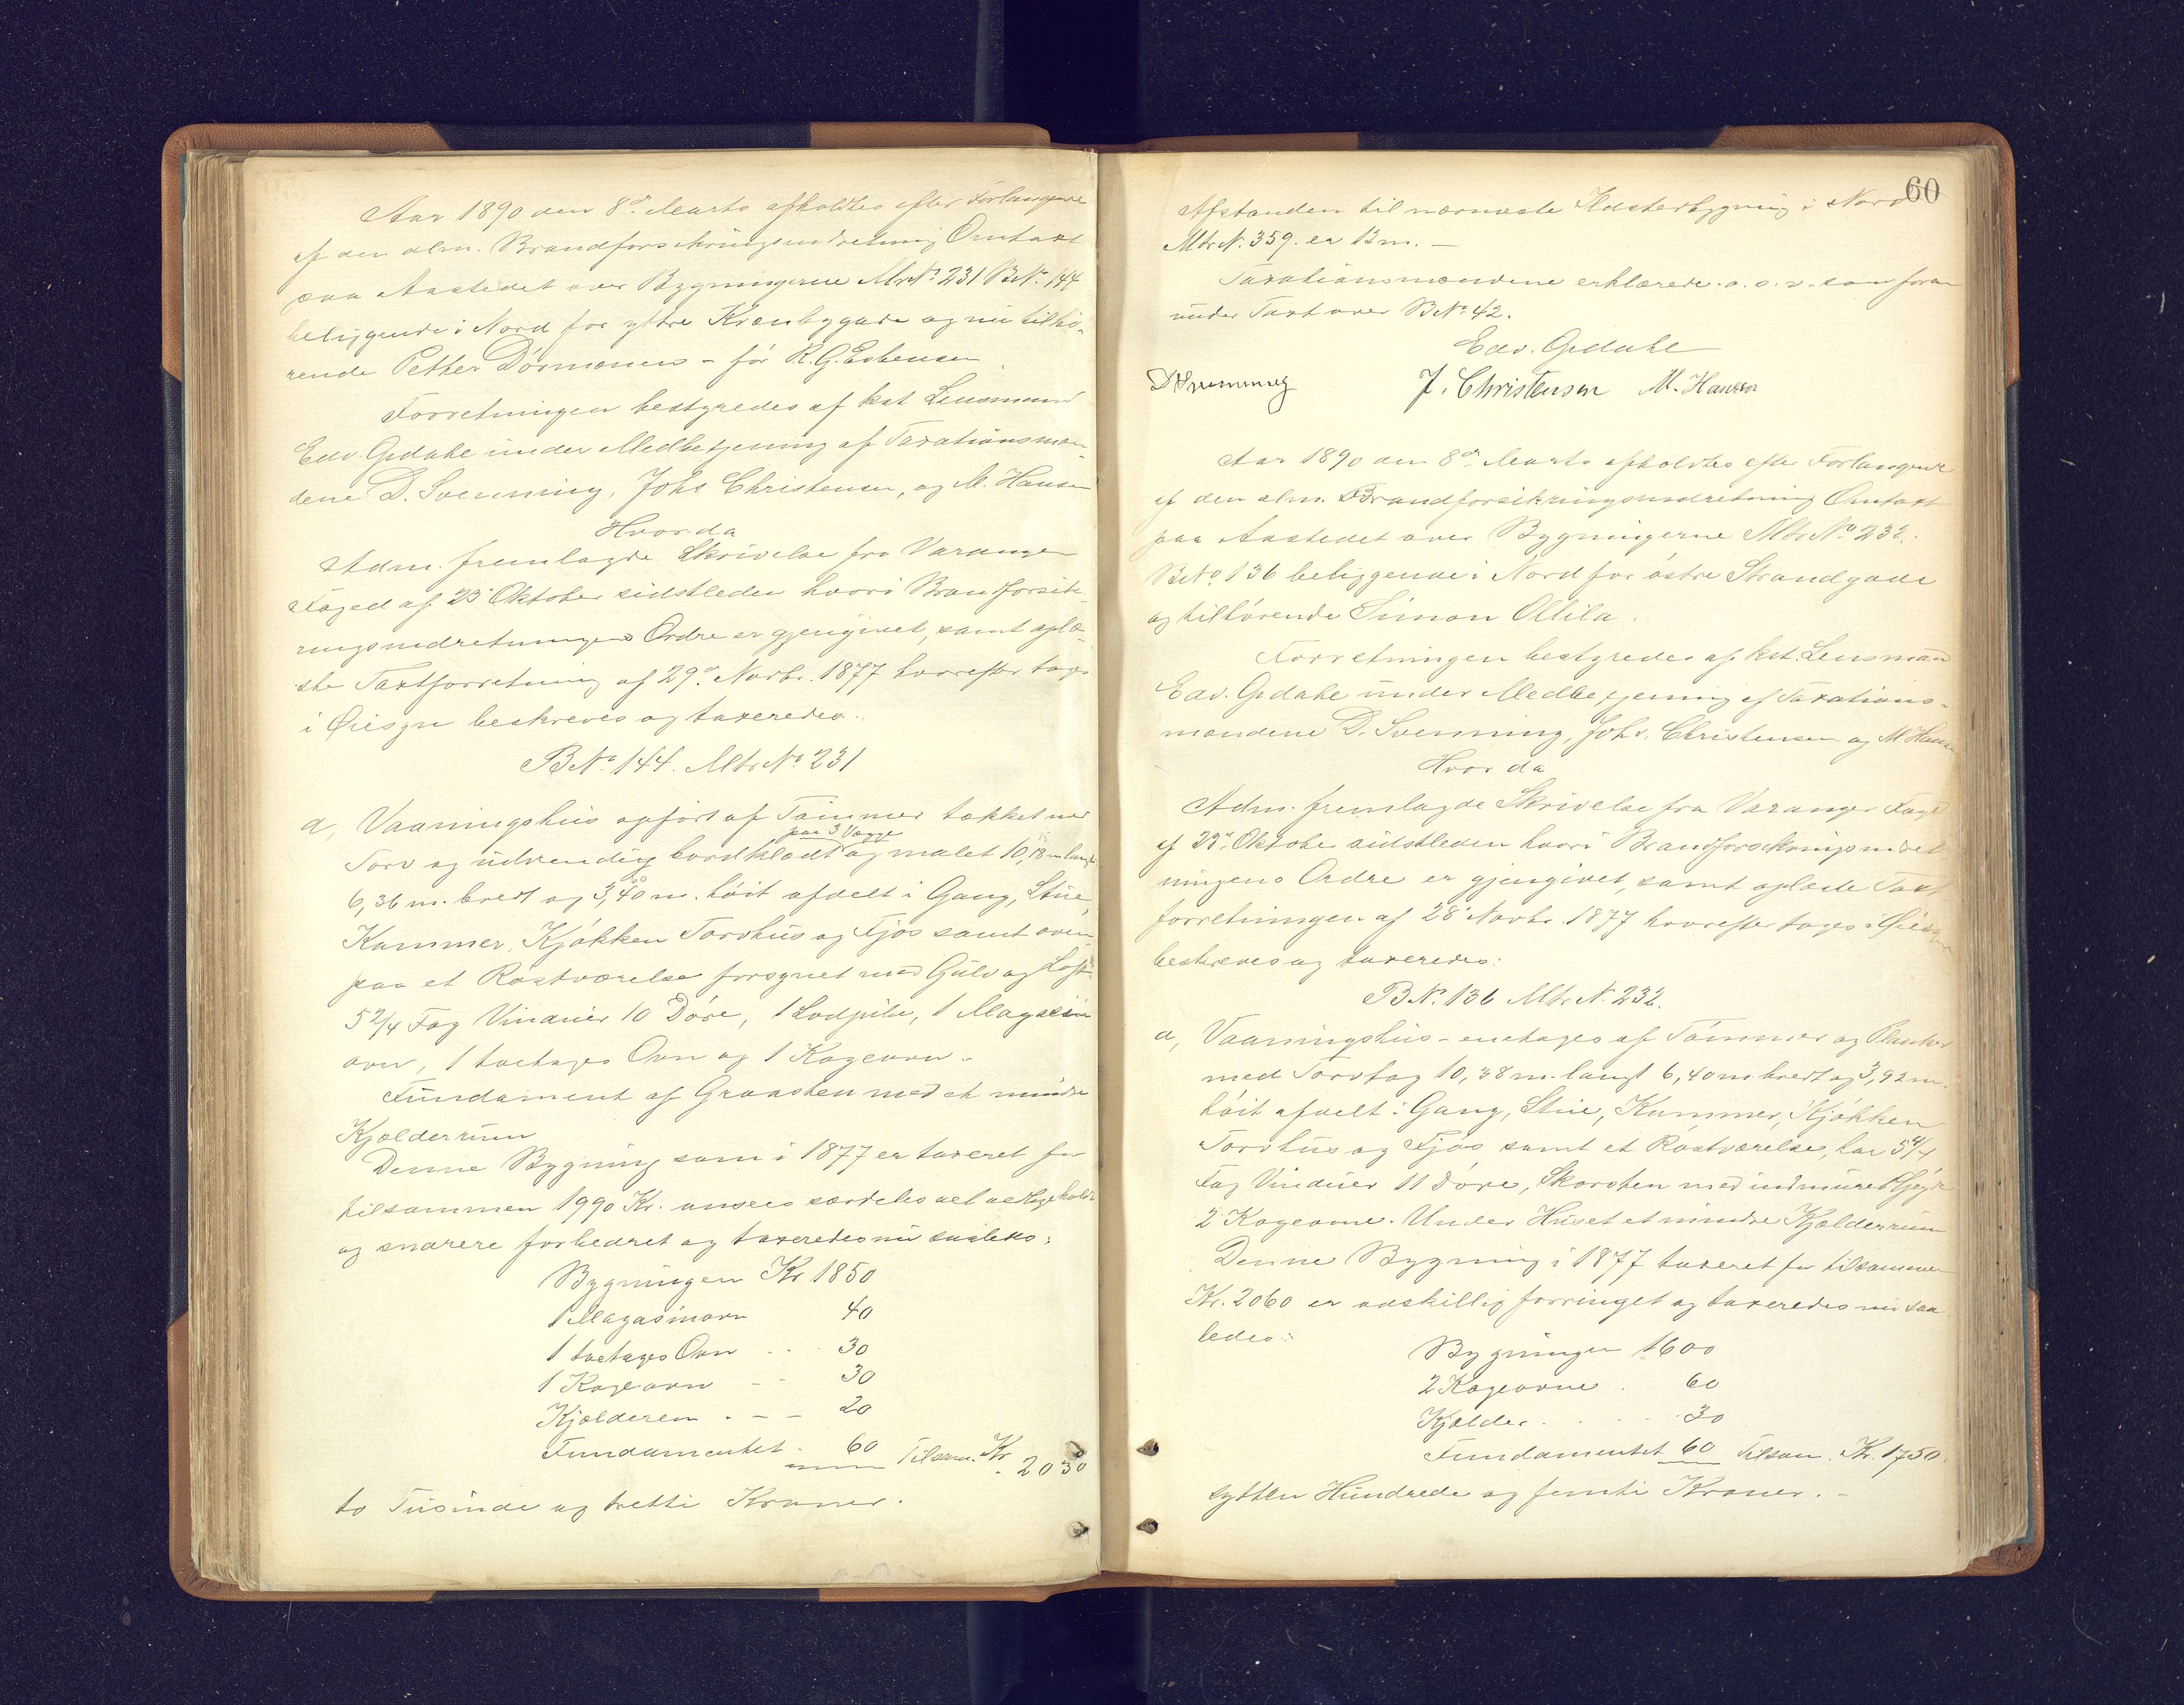 Aar 1890 den 8de Marts afholdtes efter Forlangende
af den alm. Brandforsikringsindretning Omtaxt
paa Aastedet over Bygningerne Mtr No 231 BNo. 144
beliggende i Nord for yttre Kvænbygade og nu tilhö-
rende Petter Dörmænen - för R. G. Esbensen
Forretningen bestyredes af kst Lensmand
Edv. Opdahl under Medbetjening af Taxationsmæn-
dene D. Svenning, Johs Christensen, og M. Hansen
Hvorda
Adm. fremlagde Skrivelse fra Varanger
Foged af 23 Oktober sidstleden hvori Brandforsik-
ringsindretningens Ordre er gjengivet, samt oplæ-
ste Taxtforretning af 29de Novbr. 1877 hvorefter toges
i Öiesyn beskreves og taxeredes.
BNo. 144. Mtr No 231
a, Vaaningshus opfört af Tömmer tækket med
paa 3 Vægge
Torv og udvendig bordklædt og malet 10,18 m langt
6,36 m. bredt og 3,40 m. höit afdelt i Gang, Stue,
Kammer, Kjökken Torvhus og Fjös samt oven-
paa et Röstværelse forsynet med Gulv og Loft
5 2/4 Fag Vinduer 10 Döre, 1 Lodpibe, 1 Magasin
ovn, 1 toetages Ovn og 1 Kogeovn.
Fundament af Graasten med et mindre
Kjælderrum
Denne Bygning som i 1877 er taxeret for
tilsammen 1990 Kr. ansees særdeles vel vedligeholdt
og snarere forbedret og taxeredes nu saaledes:
Bygningen Kr 1850
1 Magasinovn 40
1 toetages Ovn - - 30
1 Kogeovn - - 30
Kjælderen . - - 20
Fundamentet - 60 Tilsam. Kr. 2030
to Tusinde og tretti Kroner.
60
Afstanden til nærmeste Ildstedbygning i Nord
Mtr N. 359. er 12 m. -
Taxationsmændene erklærede o. s. v. som foran
under Taxt over BNo. 42.
Edv. Opdahl
D Svenning J. Christensen M. Hansen
Aar 1890 den 8de Marts afholdtes efter Forlangende
af den alm. Brandforsikringsindretning Omtaxt
paa Aastedet over Bygningerne Mtr No 232.
BNo. 136 beliggende i Nord for östre Strandgade
og tilhörende Simon Ollila.
Forretningen bestyredes af kst. Lensmand
Edv. Opdahl under Medbetjening af Taxations-
mændene D. Svenning, Johs. Christensen og M Hansen
Hvor da
Adm. fremlagde Skrivelse fra Varanger Foged
af 23de Oktober sidstleden hvori Brandforsikringsindret-
ningens Ordre er gjengivet, samt oplæste Taxt
forretningen af 28 Novbr. 1877 hvorefter toges i Öiesyn
beskreves og taxeredes:
BNo. 136 Mtr N. 232.
a, Vaaningshus - enetages af Tömmer og Planker
med Torvtag 10,38 m. langt 6,40 m bredt og 3,92 m.
höit afdelt i Gang, Stue, Kammer, Kjökken
Torvhus og Fjös samt et Röstværelse, har 5 4/4
Fag Vinduer 11 Döre, Skorsten med indmuret
2 Kogeovne. Under Huset et mindre Kjælderrum
Denne Bygning i 1877 taxeret for tilsammen
Kr. 2060 er adskillig forringet og taxeredes nu saa
ledes:
Bygningen 1600
2 Kogeovne . 60
Kjælder . . . 30
Fundamentet 60 Tilsam. Kr. 1750.
sytten Hundrede og femti Kroner. -